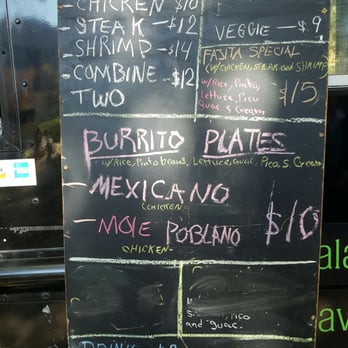 CHICKEN $10
STEAK - $12
SHRIMP - $14
- COMBINE - $12
TWO
VEGGIE - $.9
FAJITA SPECIAL
(w/CHICKEN, STEAK and SHRIMP)
w/Rice, Pinto,
Lettuce, Pico
Guac s Cream
$15
BURRITO PLATES
w/Rice, Pinto beans, Lettuce, Guac, Pico, S. Cream
- MEXICANO
(CHICKEN)
- MOLE POBLANO
CHICKEN-
$10
and guac.
DRINK